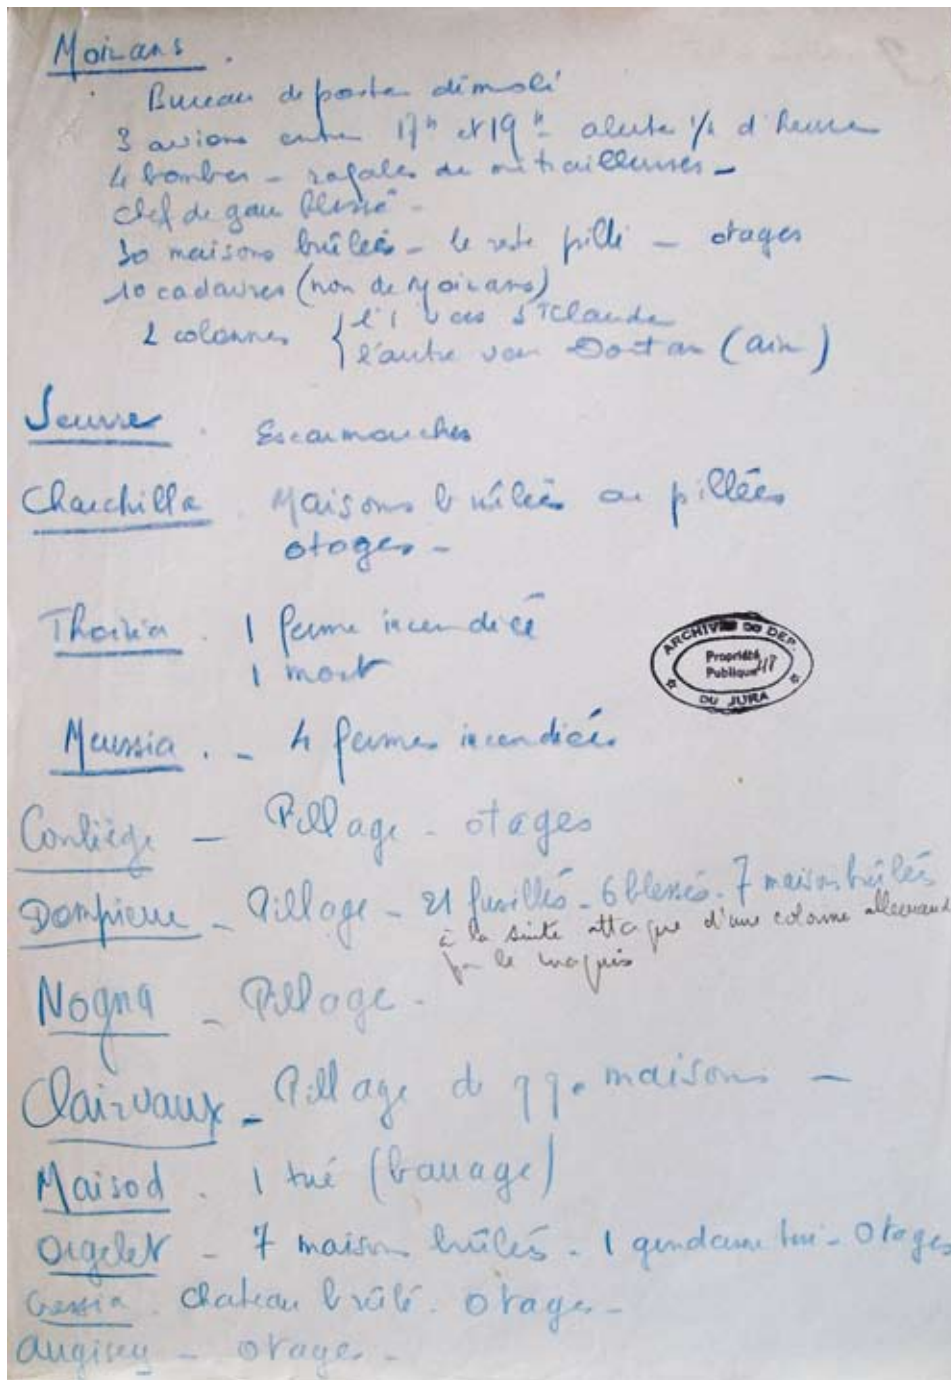 Moirans.
Bureau de postes démoli
3 avions entre 17h et 19h - alerte 1/2 d'heure
4 bombes - rafales de mitrailleuses -
chef de gare blessé -
50 maisons brûlées - le reste pillé - otages
10 cadavres (non de Moirans)
2 colonnes { l'1 vers St Claude
l'autre vers Dortan (ain)
Jeurre. Escarmouches
Charchilla Maisons brûlées ou pillées
otages -
Thoiria. 1 ferme incendiée
1 mort
Meussia. - 4 fermes incendiées
Conliège - Pillage - otages
Dompierre - Pillage - 21 fusillés - 6 blessés - 7 maisons brûlées
à la suite attaque d'une colonne allemande
par le maquis
Nogna - Pillage -
Clairvaux - Pillage de qq. maisons -
Maisod. 1 tué (barrage)
Orgelet - 7 maisons brûlées - 1 gendarme tué - Otages
Gessia. Chateau brûlé. Otages -
Augisey - otages -
ARCHIVES DU DEP.
Propriété
Publique
DU JURA